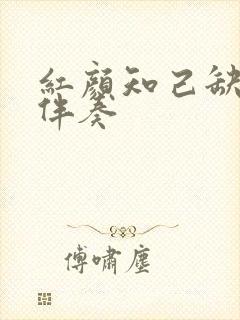 紅顏知己缺
伴奏
傅嘯塵